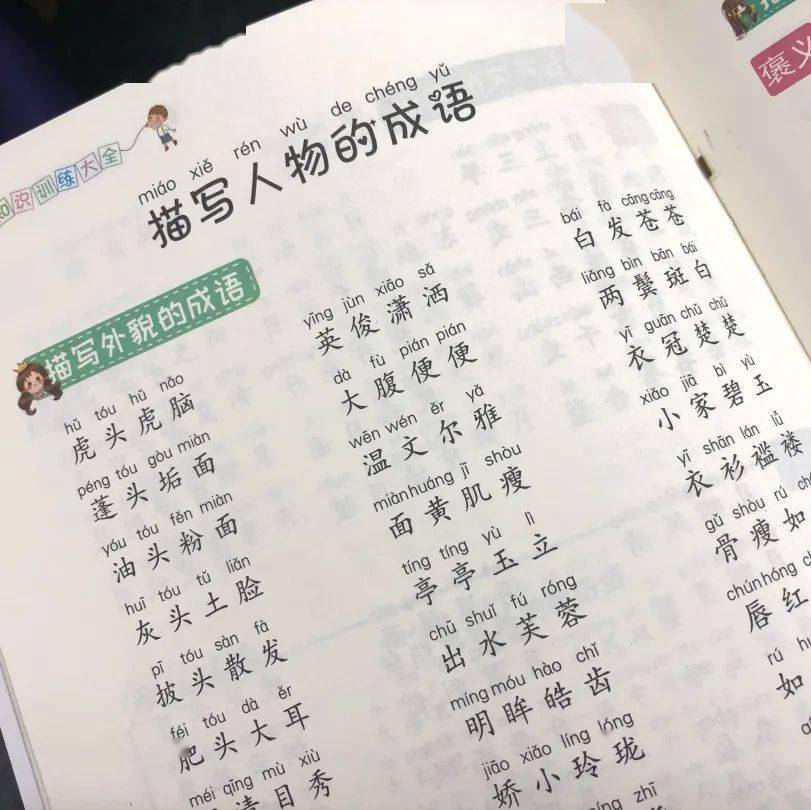 识训练大全
miáo xiě rén wù de chéng yǔ
描写人物的成语
褒义
描写外貌的成语
hǔ tóu hǔ nǎo
虎头虎脑
péng tóu gòu miàn
蓬头垢面
yóu tóu fěn miàn
油头粉面
huī tóu tǔ liǎn
灰头土脸
pī tóu sàn fà
披头散发
féi tóu dà ěr
肥头大耳
méi qīng mù xiù
清目秀
yīng jùn xiāo sǎ
英俊潇洒
dà fù pián pián
大腹便便
wēn wén ěr yǎ
温文尔雅
miàn huáng jī shòu
面黄肌瘦
tíng tíng yù lì
亭亭玉立
chū shuǐ fú róng
出水芙蓉
míng móu hào chǐ
明眸皓齿
jiāo xiǎo líng lóng
娇小玲珑
zhī
bái fà cāng cāng
白发苍苍
liǎng bìn bān bái
两鬓斑白
yī guān chǔ chǔ
衣冠楚楚
xiǎo jiā bì yù
小家碧玉
yī shān lán lǚ
衣衫褴褛
gǔ shòu rú
骨瘦如
chún hóng
唇红
rú
如